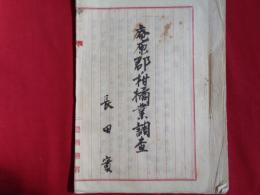 庵原郡柑橘業調査
長田實